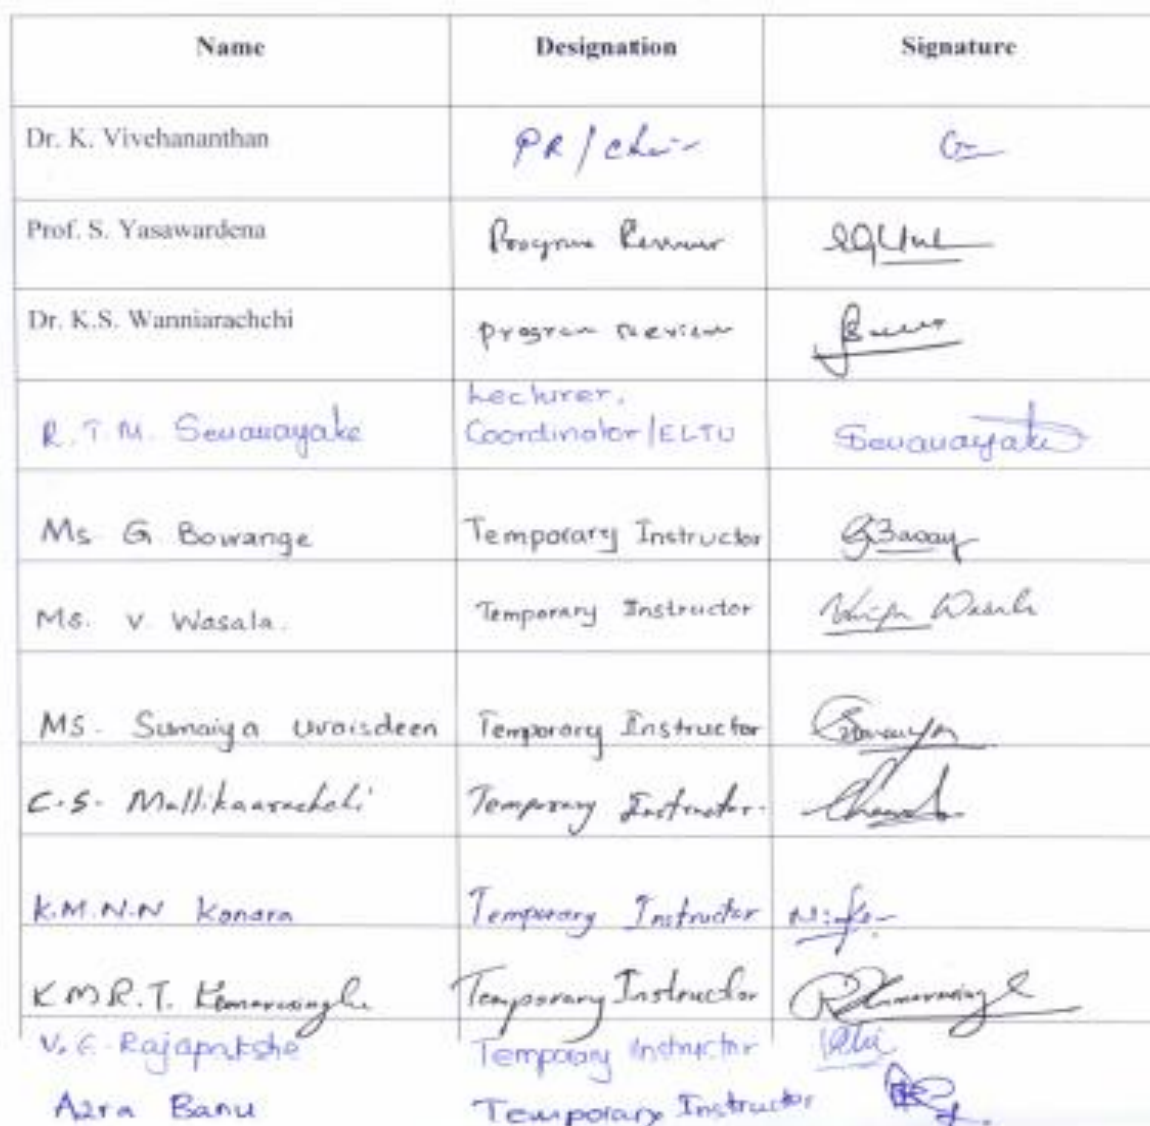 Name Designation Signature
Dr. K. Vivehananthan PR / Chair
Prof. S. Yasawardena Program Reviewer
Dr. K.S. Wanniarachchi program reviewer
Lecturer,
R.T.M. Senanayake Coordinator/ELTU Senanayake
Ms G Bowange Temporary Instructor
Ms. V Wasala. Temporary Instructor Wasala
MS. Sumaiya Uvaisdeen Temporary Instructor Sumaiya
C.S. Mallikaarachchi Temporary Instructor.
K.M.N.N Konara Temporary Instructor
K M R.T. Kumarasinghe Temporary Instructor
V. E. Rajapakshe Temporary Instructor
Azra Banu Temporary Instructor